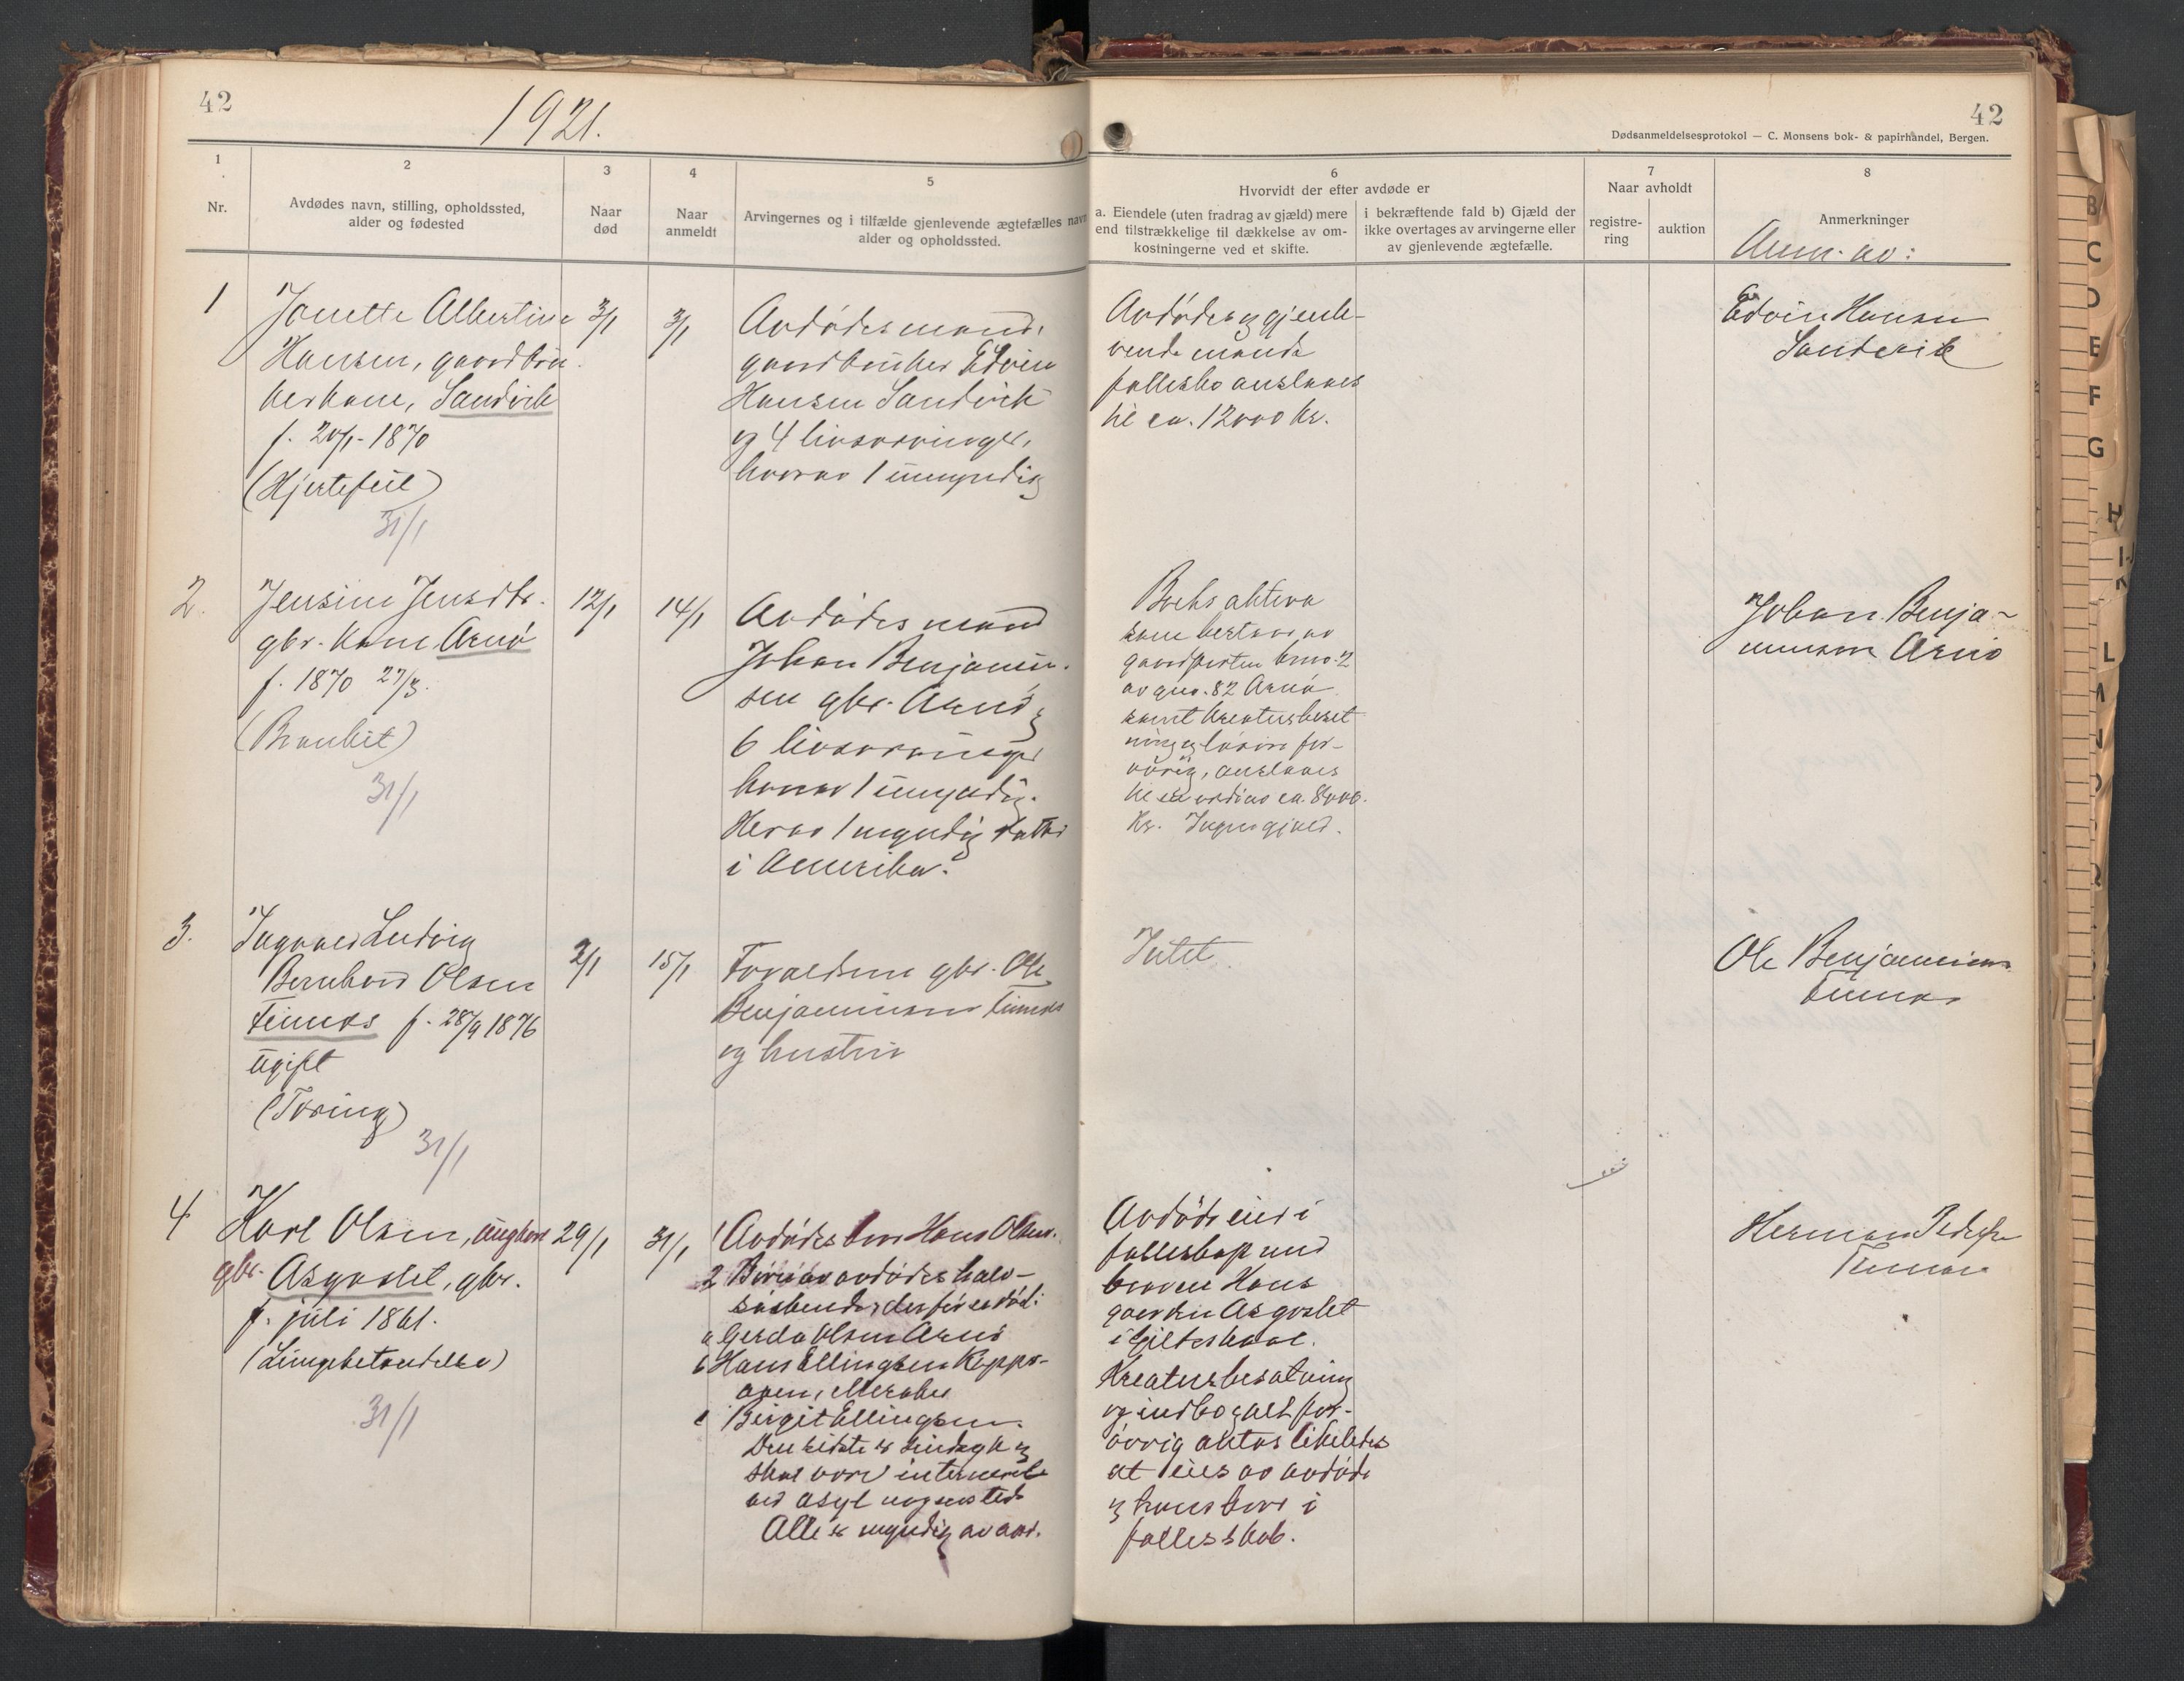 42
1921.
42
Dødsanmeldelsesprotokol — C. Monsens bok- & papirhandel, Bergen.
1
Nr.
2
Avdødes navn, stilling, opholdssted,
alder og fødested
3
Naar
død
4
Naar
anmeldt
5
Arvingernes og i tilfælde gjenlevende ægtefælles navn
alder og opholdssted.
6
Hvorvidt der efter avdøde er
a. Eiendele (uten fradrag av gjæld) mere
end tilstrækkelige til dækkelse av om-
kostningerne ved et skifte.
i bekræftende fald b) Gjæld der
ikke overtages av arvingerne eller
av gjenlevende ægtefælle.
7
Naar avholdt
registre-
ring
auktion
8
Anmerkninger
Anm. av:
1
Jonette Albertine
Hansen, gaardbru-
kerkone, Sandvik
f. 20/1-1870
(Hjertefeil)
31/1
3/1
3/1
Avdødes mand,
gaardbruker Edvin
Hansen Sandvik
og 4 livsarvinger,
hvorav 1 umyndig
Avdødes og gjenle-
vende mands
fællesbo anslaaes
til ca. 12000 kr.
Edvin Hansen
Sandvik
2.
Jensine Jensdtr.
gbr. kone Arnö
f. 1870 27/3.
31/1
12/1
14/1
Avdødes mand
Johan Benjamin-
sen gbr. Arnö og
6 livsarvinger
hvorav 1 umyndig.
Herav 1 myndig datter
i Amerika.
Boets aktiva
som bestaar av
gaardparten bno. 2
av gno. 82 Arnö
samt kreaturbeset
ning og lösöre for-
övrig, anslaaes
til en værdi av ca. 8000.
Kr. Ingen gjæld.
Johan Benja-
minsen Arnö
3.
Ingvald Ludvig
Bernhard Olsen
Finnæs f. 28/9 1876
ugift
(Tæring)
31/1
2/1
15/1
Forældrene gbr. Ole
Benjaminsen Finnæs
og hustru
Intet
Ole Benjaminsen
Finnæs
4
Karl Olsen, ungkar
gbr. Aasgaslet, gbr.
f. juli 1861.
(Lungebetændelse)
31/1
29/1
31/1
1 Avdødes bror Hans Olsen.
2 Börn av avdødes halv-
söskende, der för er död:
a Gerda Olsen Arnö
b Hans Ellingsen
c Birgit Ellingsen.
Den sidste er sindsyk og
skal være interneret
ved asyl nogensteds
Alle er myndig av aar.
Avdöde eier i
fællesskap med
broren Hans
gaarden Asgaslet
i Gildeskaal.
Kreaturbesætning
og indbo og alt for-
övrig antas likeledes
at eies av avdøde
og hans bror i
fællesskab.
Herman Pedersen
Finnæs
B
C
D
E
F
G
H
I-J
L